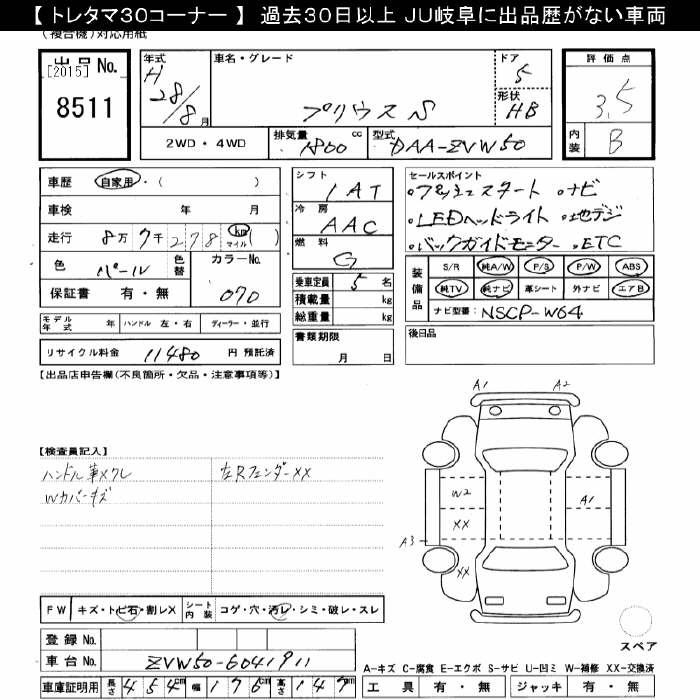 【 トレタマ30コーナー 】 過去30日以上 JU岐阜に出品歴がない車両
(複合機)対応用紙
出品 No.
[2015]
8511
年式
H
28/8月
車名・グレード
プリウス S
ドア
5
形状
HB
評価点
3.5
内装
B
2WD・4WD
排気量
1800 cc
型式
DAA-ZVW50
車歴 自家用・( )
車検 年 月
走行 8万7千278 km マイル ( )
色 パール 色替
カラーNo.
070
保証書 有・無
モデル年式 年 ハンドル 左・右 ディーラー・並行
リサイクル料金 11480 円 預託済
シフト
1AT
冷房
AAC
燃料
G
乗車定員 5 名
積載量 kg
総重量 kg
書類期限
月 日
セールスポイント
・プッシュスタート ・ナビ
・LEDヘッドライト ・地デジ
・バックガイドモニター ・ETC
装備品
S/R 純A/W P/S P/W ABS
純TV 純ナビ 革シート 外ナビ エアB
ナビ型番: NSCP-W64
後日品
【出品店申告欄(不良箇所・欠品・注意事項等)】
【検査員記入】
ハンドル革メクレ
Wカバーキズ
左Rフェンダーxx
A1 A2
W2
XX
A1
A3
XX
スペア
FW キズ・トビ石・割レX シート内装 コゲ・穴・汚レ・シミ・破レ・スレ
登録 No.
車台 No. ZVW50-6041911
車庫証明用 長さ 454cm 幅 176cm 高さ 147cm
A-キズ C-腐食 E-エクボ S-サビ U-凹ミ W-補修 XX-交換済
工具 有・無 ジャッキ 有・無